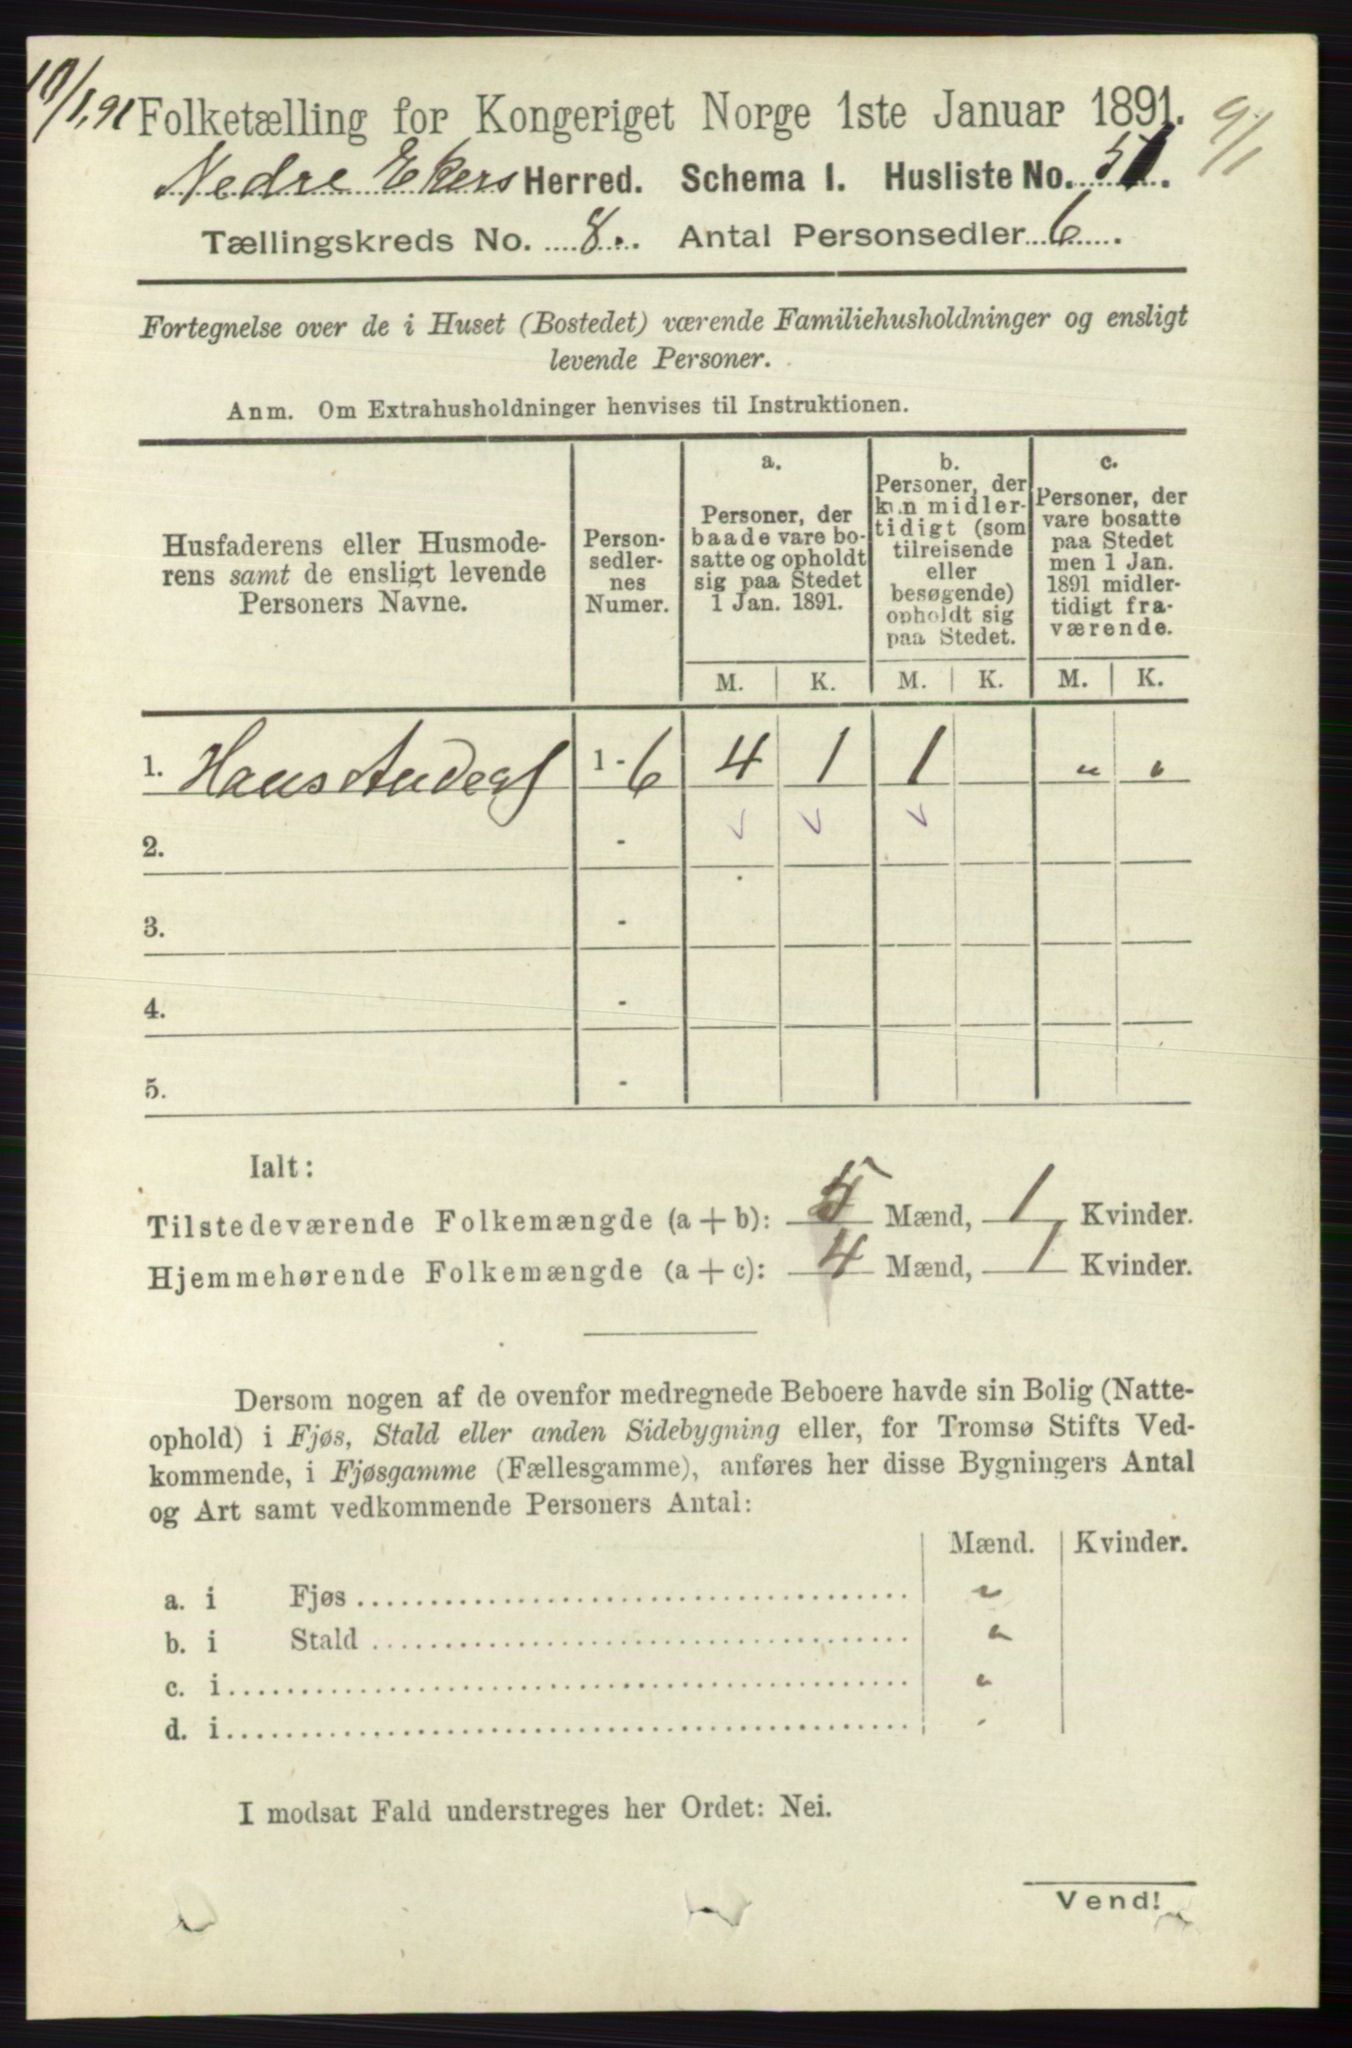 10/1,91
Folketælling for Kongeriget Norge 1ste Januar 1891.
9/1
Nedre Ekers Herred. Schema I. Husliste No. 51.
Tællingskreds No. 8. Antal Personsedler 6.
Fortegnelse over de i Huset (Bostedet) værende Familiehusholdninger og ensligt
levende Personer.
Anm. Om Extrahusholdninger henvises til Instruktionen.
Husfaderens eller Husmode-
rens samt de ensligt levende
Personers Navne.
Person-
sedler-
nes
Numer.
a.
Personer, der
baade vare bo-
satte og opholdt
sig paa Stedet
1 Jan. 1891.
b.
Personer, der
kun midler-
tidigt (som
tilreisende
eller
besøgende)
opholdt sig
paa Stedet.
c.
Personer, der
vare bosatte
paa Stedet
men 1 Jan.
1891 midler-
tidigt fra-
værende.
M. K. M. K. M. K.
1. Hans Anders 1 - 6 4 1 1 " "
2. -
3. -
4. -
5. -
Ialt:
Tilstedeværende Folkemængde (a + b): 5 Mænd, 1 Kvinder.
Hjemmehørende Folkemængde (a + c): 4 Mænd, 1 Kvinder.
Dersom nogen af de ovenfor medregnede Beboere havde sin Bolig (Natte-
ophold) i Fjøs, Stald eller anden Sidebygning eller, for Tromsø Stifts Ved-
kommende, i Fjøsgamme (Fællesgamme), anføres her disse Bygningers Antal
og Art samt vedkommende Personers Antal:
Mænd. Kvinder.
a. i Fjøs "
b. i Stald "
c. i "
d. i "
I modsat Fald understreges her Ordet: Nei.
Vend!